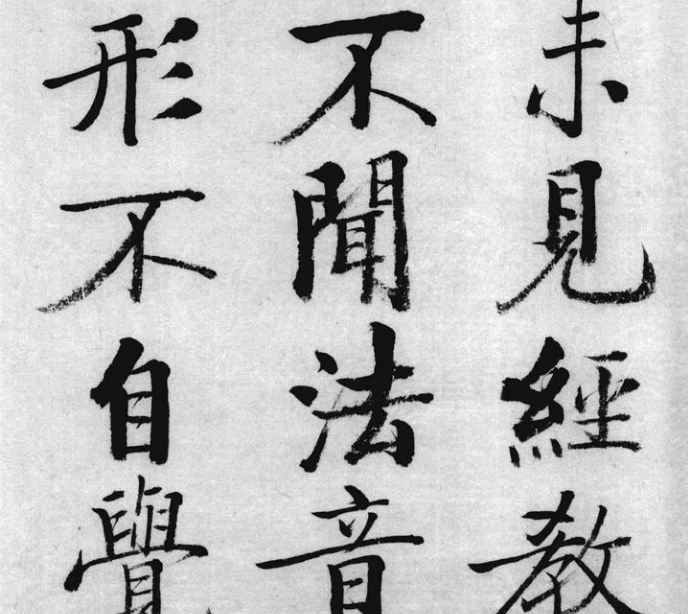 未見經教
不聞法音
形不自覺